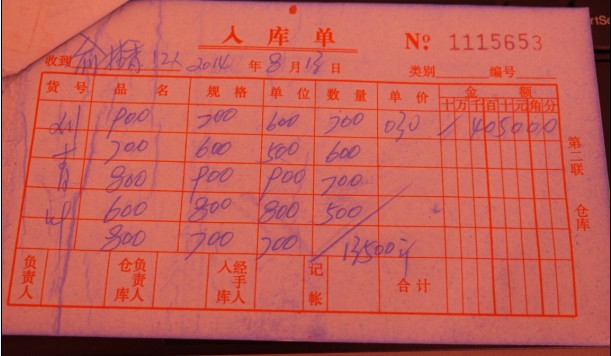 rtSc
入库单
№ 1115653
收到 12人 2014 年 8 月 13 日 类别 编号
货号 品名 规格 单位 数量 单价 金额
十万千百十元角分
900 700 600 700 030 / 405000
700 600 500 600
800 900 900 700
600 800 800 500
800 700 700 / 13500
负责人 仓库负责人 入库经手人 记帐 合计
第二联 仓库